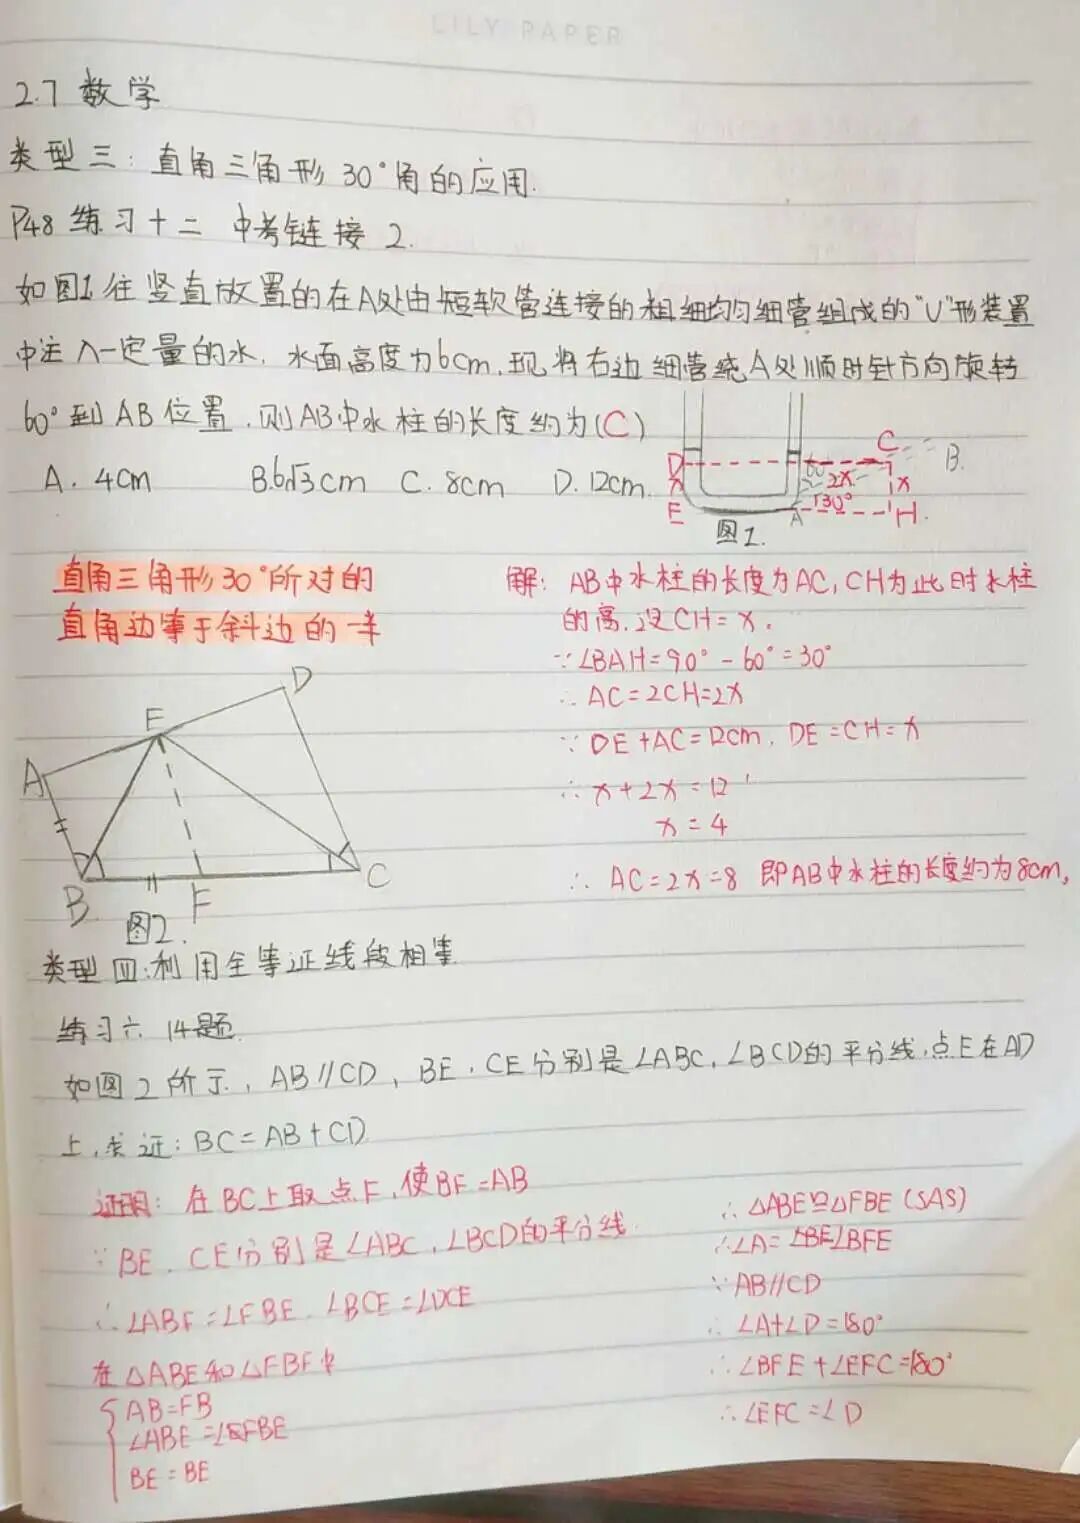 LILY PAPER
2.7 数学
类型三：直角三角形30°角的应用.
P48 练习十二 中考链接 2.
如图1,往竖直放置的在A处由短软管连接的粗细均匀细管组成的“U”形装置
中注入一定量的水,水面高度为6cm,现将右边细管绕A处顺时针方向旋转
60°到AB位置,则AB中水柱的长度约为(C)
A. 4cm B.6√3cm C. 8cm D. 12cm.
D C B.
60° 2x x x
E A 30° H.
图1.
直角三角形30°所对的
直角边等于斜边的一半
解：AB中水柱的长度为AC,CH为此时水柱
的高,设CH=x.
∵∠BAH=90°-60°=30°
∴AC=2CH=2x
∵DE+AC=12cm, DE=CH=x
∴x+2x=12
x=4
∴AC=2x=8 即AB中水柱的长度约为8cm,
D
E
A
B F C
图2.
类型四:利用全等证线段相等
练习六 14题.
如图2所示,AB∥CD,BE、CE分别是∠ABC,∠BCD的平分线,点E在AD
上,求证:BC=AB+CD
证明:在BC上取点F,使BF=AB
∵BE、CE分别是∠ABC,∠BCD的平分线
∴∠ABE=∠FBE、∠BCE=∠DCE
在△ABE和△FBE中
AB=FB
∠ABE=∠FBE
BE=BE
∴△ABE≌△FBE(SAS)
∴∠A=∠BFE
∵AB∥CD
∴∠A+∠D=180°
∴∠BFE+∠EFC=180°
∴∠EFC=∠D